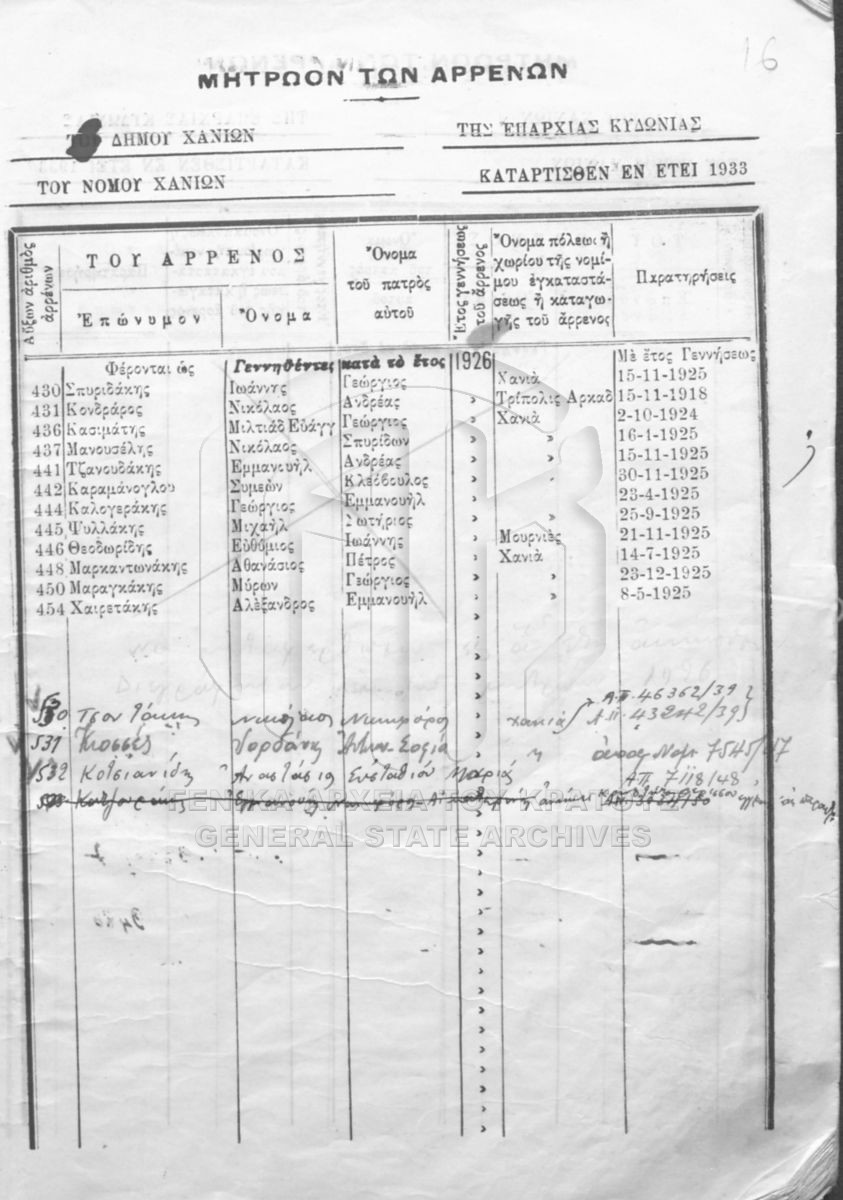 16
ΜΗΤΡΩΟΝ ΤΩΝ ΑΡΡΕΝΩΝ
ΔΗΜΟΥ ΧΑΝΙΩΝ ΤΗΣ ἘΠΑΡΧΙΑΣ ΚΥΔΩΝΙΑΣ
ΤΟΥ ΝΟΜΟΥ ΧΑΝΙΩΝ ΚΑΤΑΡΤΙΣΘΕΝ ΕΝ ΕΤΕΙ 1933
Αὔξων ἀριθμὸς ἀρρένων
ΤΟΥ ΑΡΡΕΝΟΣ
Ἐπώνυμον Ὄνομα
Ὄνομα
τοῦ πατρὸς
αὐτοῦ
Ἔτος γεννήσεως
τοῦ ἄρρενος
Ὄνομα πόλεως ἢ
χωρίου τῆς νομί-
μου ἐγκαταστά-
σεως ἢ καταγω-
γῆς τοῦ ἄρρενος
Παρατηρήσεις
Φέρονται ὡς Γεννηθέντες κατὰ τὸ ἔτος 1926 Μὲ ἔτος Γεννήσεως
430 Σπυριδάκης Ἰωάννης Γεώργιος Χανιὰ 15-11-1925
431 Κονδράρος Νικόλαος Ἀνδρέας » Τρίπολις Ἀρκαδ 15-11-1918
436 Κασιμάτης Μιλτιάδ Εὐάγγ Γεώργιος » Χανιὰ 2-10-1924
437 Μανουσέλης Νικόλαος Σπυρίδων » » 16-1-1925
441 Τζανουδάκης Ἐμμανουὴλ Ἀνδρέας » » 15-11-1925
442 Καραμάνογλου Συμεὼν Κλεόβουλος » » 30-11-1925
444 Καλογεράκης Γεώργιος Ἐμμανουὴλ » » 23-4-1925
445 Ψυλλάκης Μιχαὴλ Σωτήριος » » 25-9-1925
446 Θεοδωρίδης Εὐθύμιος Ἰωάννης » Μουρνιὲς 21-11-1925
448 Μαρκαντωνάκης Ἀθανάσιος Πέτρος » Χανιὰ 14-7-1925
450 Μαραγκάκης Μύρων Γεώργιος » » 23-12-1925
454 Χαιρετάκης Ἀλέξανδρος Ἐμμανουὴλ » » 8-5-1925
Α.Π. 46362/39
530 Νικόλαος χανιά Α.Π. 43242/39
531 Νομ 7545/47
532 Κοτσιανίδη Αναστάσιο Ευσταθίου Μαρίας ΑΠ 7118/48
ΓΕΝΙΚΑ ΑΡΧΕΙΑ ΤΟΥ ΚΡΑΤΟΥΣ
GENERAL STATE ARCHIVES